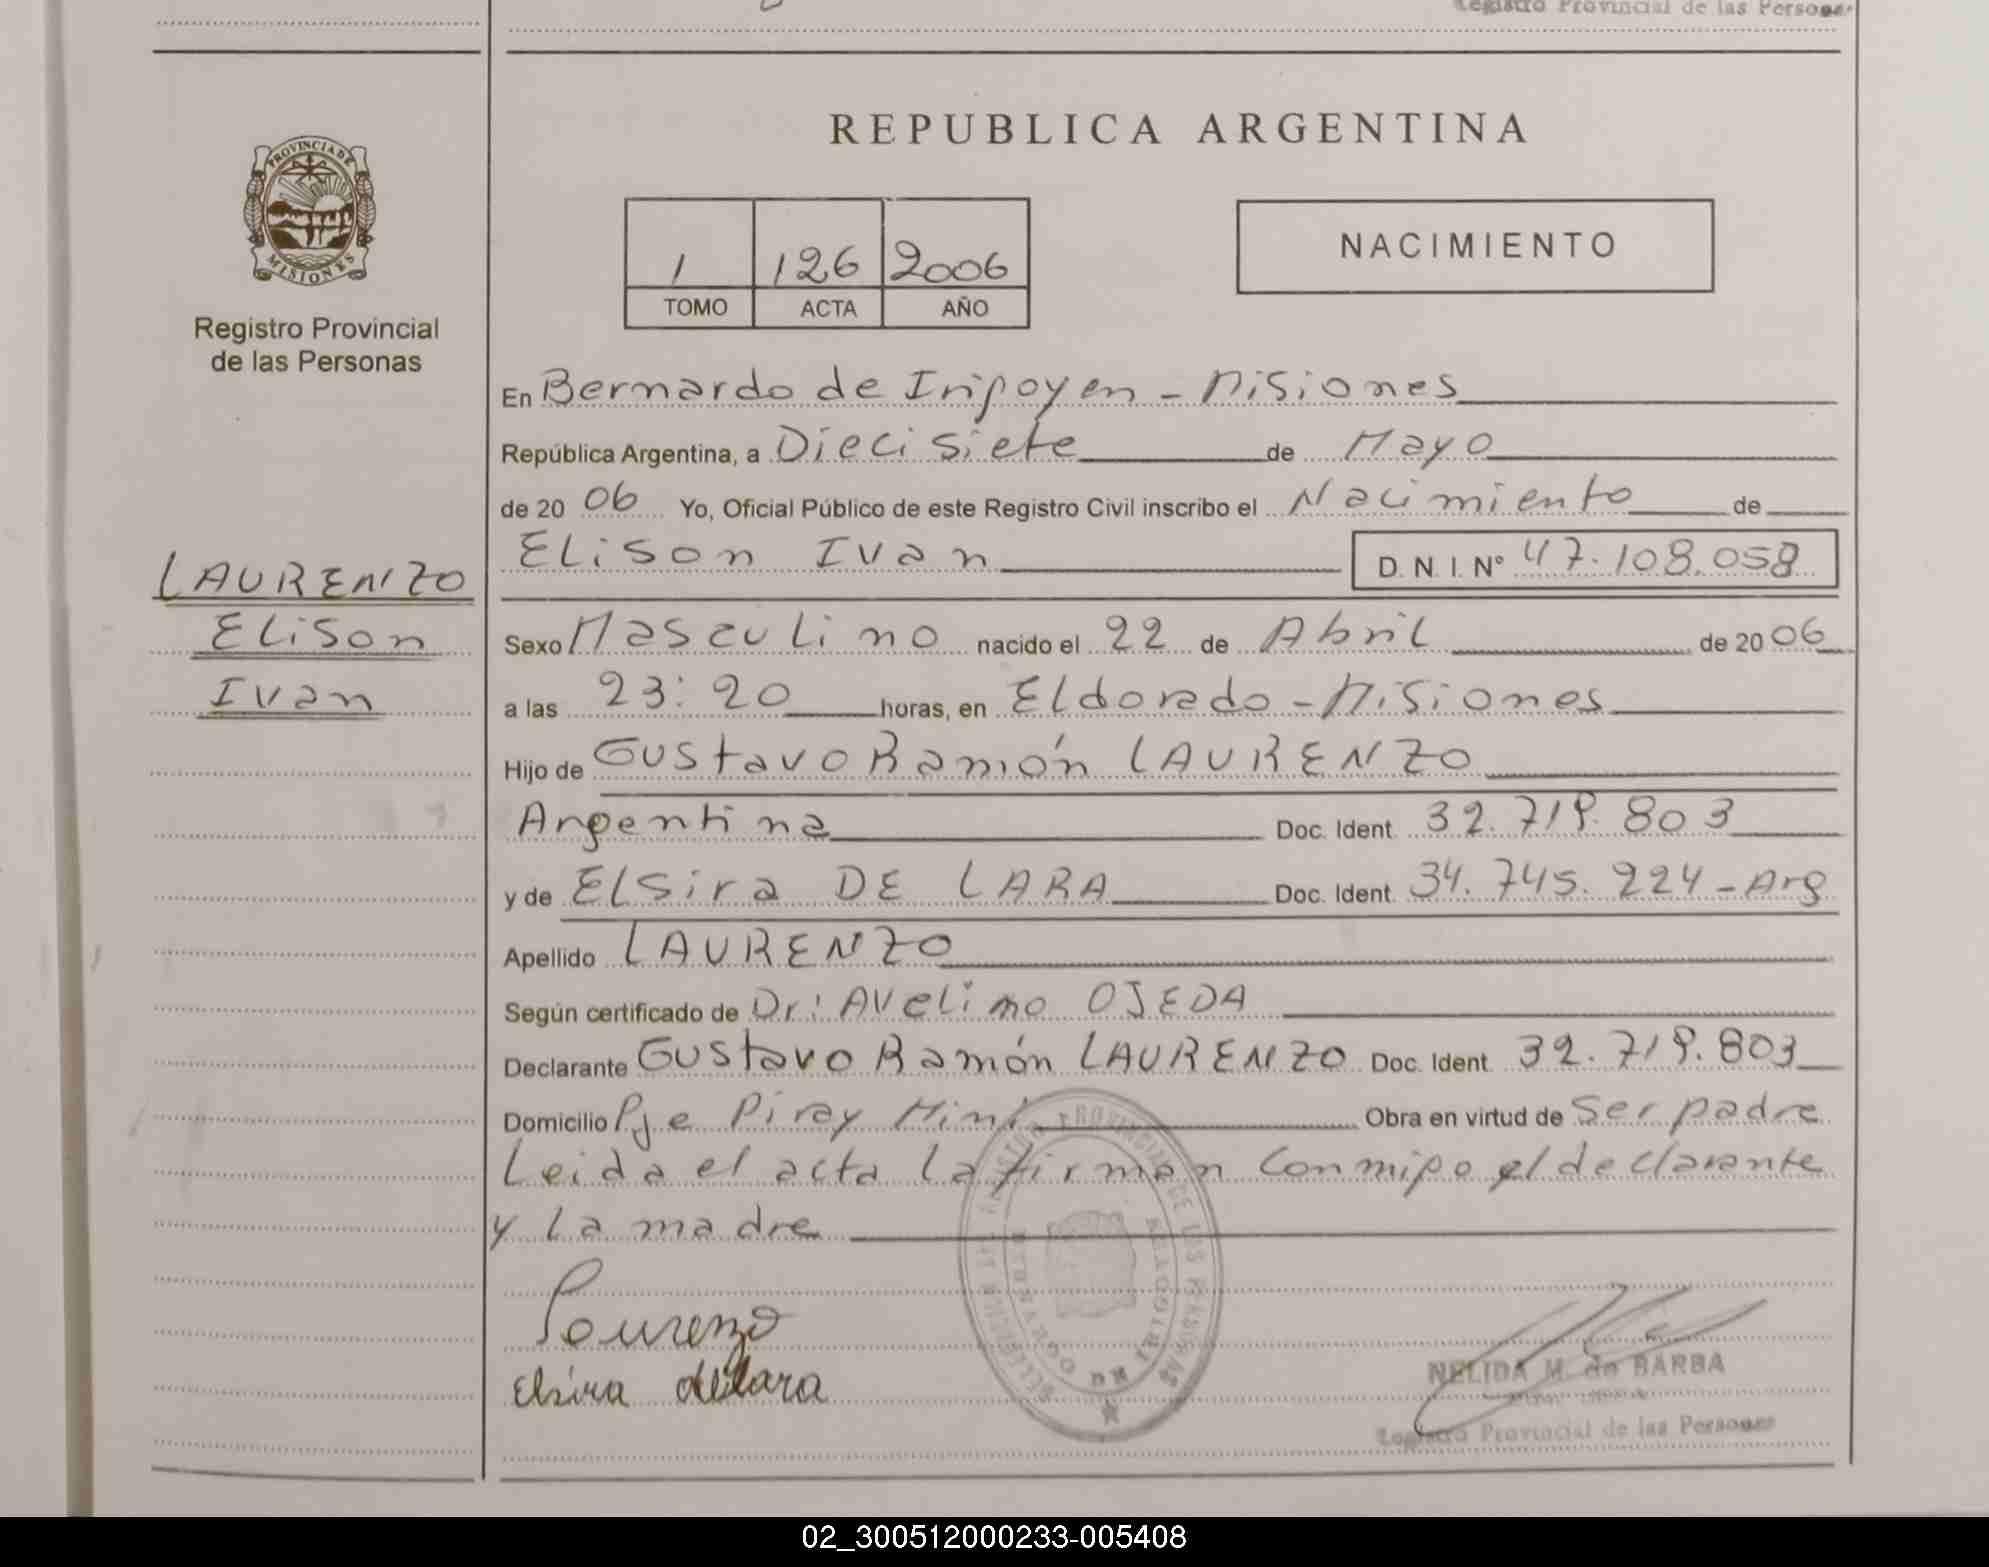 Registro Provincial de las Personas
REPUBLICA ARGENTINA
PROVINCIA DE
MISIONES
Registro Provincial
de las Personas
1 126 2006
TOMO ACTA AÑO
NACIMIENTO
En Bernardo de Irigoyen - Misiones
República Argentina, a Diecisiete de Mayo
de 2006 Yo, Oficial Público de este Registro Civil inscribo el Nacimiento de
Elison Ivan D.N.I. Nº 47.108.058
LAURENZO
Elison
Ivan
Sexo Masculino nacido el 22 de Abril de 2006
a las 23:20 horas, en Eldorado - Misiones
Hijo de Gustavo Ramón LAURENZO
Argentina Doc. Ident. 32.719.803
y de Elsira DE LARA Doc. Ident. 34.745.224 - Arg
Apellido LAURENZO
Según certificado de Dr: Avelino OJEDA
Declarante Gustavo Ramón LAURENZO Doc. Ident. 32.719.803
Domicilio Pje Piray Mini Obra en virtud de Ser padre
Leida el acta la firman conmigo el declarante
y la madre
Lourenzo
Elsira delara
NELIDA M. de BARBA
Registro Provincial de las Personas
02_300512000233-005408